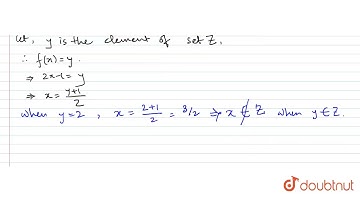 Let, y is the element of set Z.
∴ f(x) = y.
⇒ 2x-1 = y
⇒ x = y+1/2
when y=2, x = 2+1/2 = 3/2 ⇒ x ∉ Z when y ∈ Z.
doubtnut